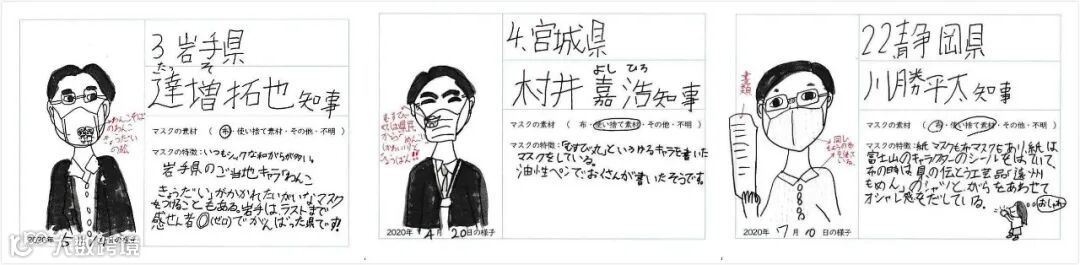 3 岩手県
たっ そ
達増拓也知事
わんこそばの
わんこ
きょうだい
の絵
マスクの素材 （ 布・使い捨て素材・その他・不明 ）
マスクの特徴：いつもシックな和がらが多い。
岩手県のご当地キャラ「わんこ
きょうだい」がかかれたかわいいマスク
をつけることもある。岩手は、ラストまで
感せん者0(ゼロ)でがんばった県です!
2020年 5月 日の様子
大数跨境
4.宮城県
よし ひろ
村井嘉浩知事
むすび丸
マスクの素材 （ 布・使い捨て素材・その他・不明 ）
マスクの特徴：「むすび丸」というゆるキャラを書いた
マスクをしている。
油性ペンでおくさんが書いたそうです。
2020年 4月 20日の様子
22静岡県
川勝平太知事
書類
マスクの素材 （ 布・使い捨て素材・その他・不明 ）
マスクの特徴：紙マスクも布マスクもあり。紙は
富士山のキャラクターのシールをはっていて、
布の時は県の伝とう工芸品「遠州
もめん」のシャツと、がらをあわせて
オシャレ感をだしている。
おしゃれ
2020年 7月 10日の様子